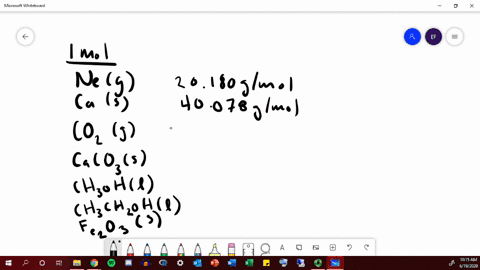 Microsoft Whiteboard
EF
1 mol
Ne (g) 20.180 g/mol
Ca (s) 40.078 g/mol
CO₂ (g)
CaCO₃ (s)
CH₃OH (l)
CH₃CH₂OH (l)
Fe₂O₃ (s)
10:15 AM